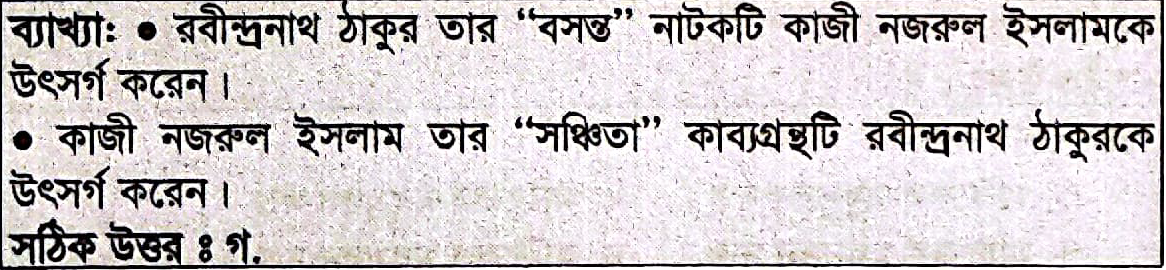 ব্যাখ্যা: ● রবীন্দ্রনাথ ঠাকুর তার “বসন্ত” নাটকটি কাজী নজরুল ইসলামকে
উৎসর্গ করেন।
● কাজী নজরুল ইসলাম তার “সঞ্চিতা” কাব্যগ্রন্থটি রবীন্দ্রনাথ ঠাকুরকে
উৎসর্গ করেন।
সঠিক উত্তর ঃ গ.